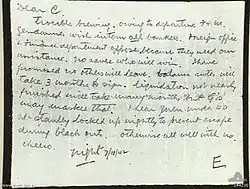 Dear C.
Trouble brewing, owing to departure H.K.
Gendarmes wish intern all bankers. Foreign office
& Finance department oppose because they need our
assistance. No saying who will win. I have
promised no others will leave. balance notes will
take 3 months to sign. liquidation not nearly
finished will take many months but
may market that. I hear John under
at Stanley locked up nightly to prevent escape
during black outs. otherwise all well with us
cheero.
E